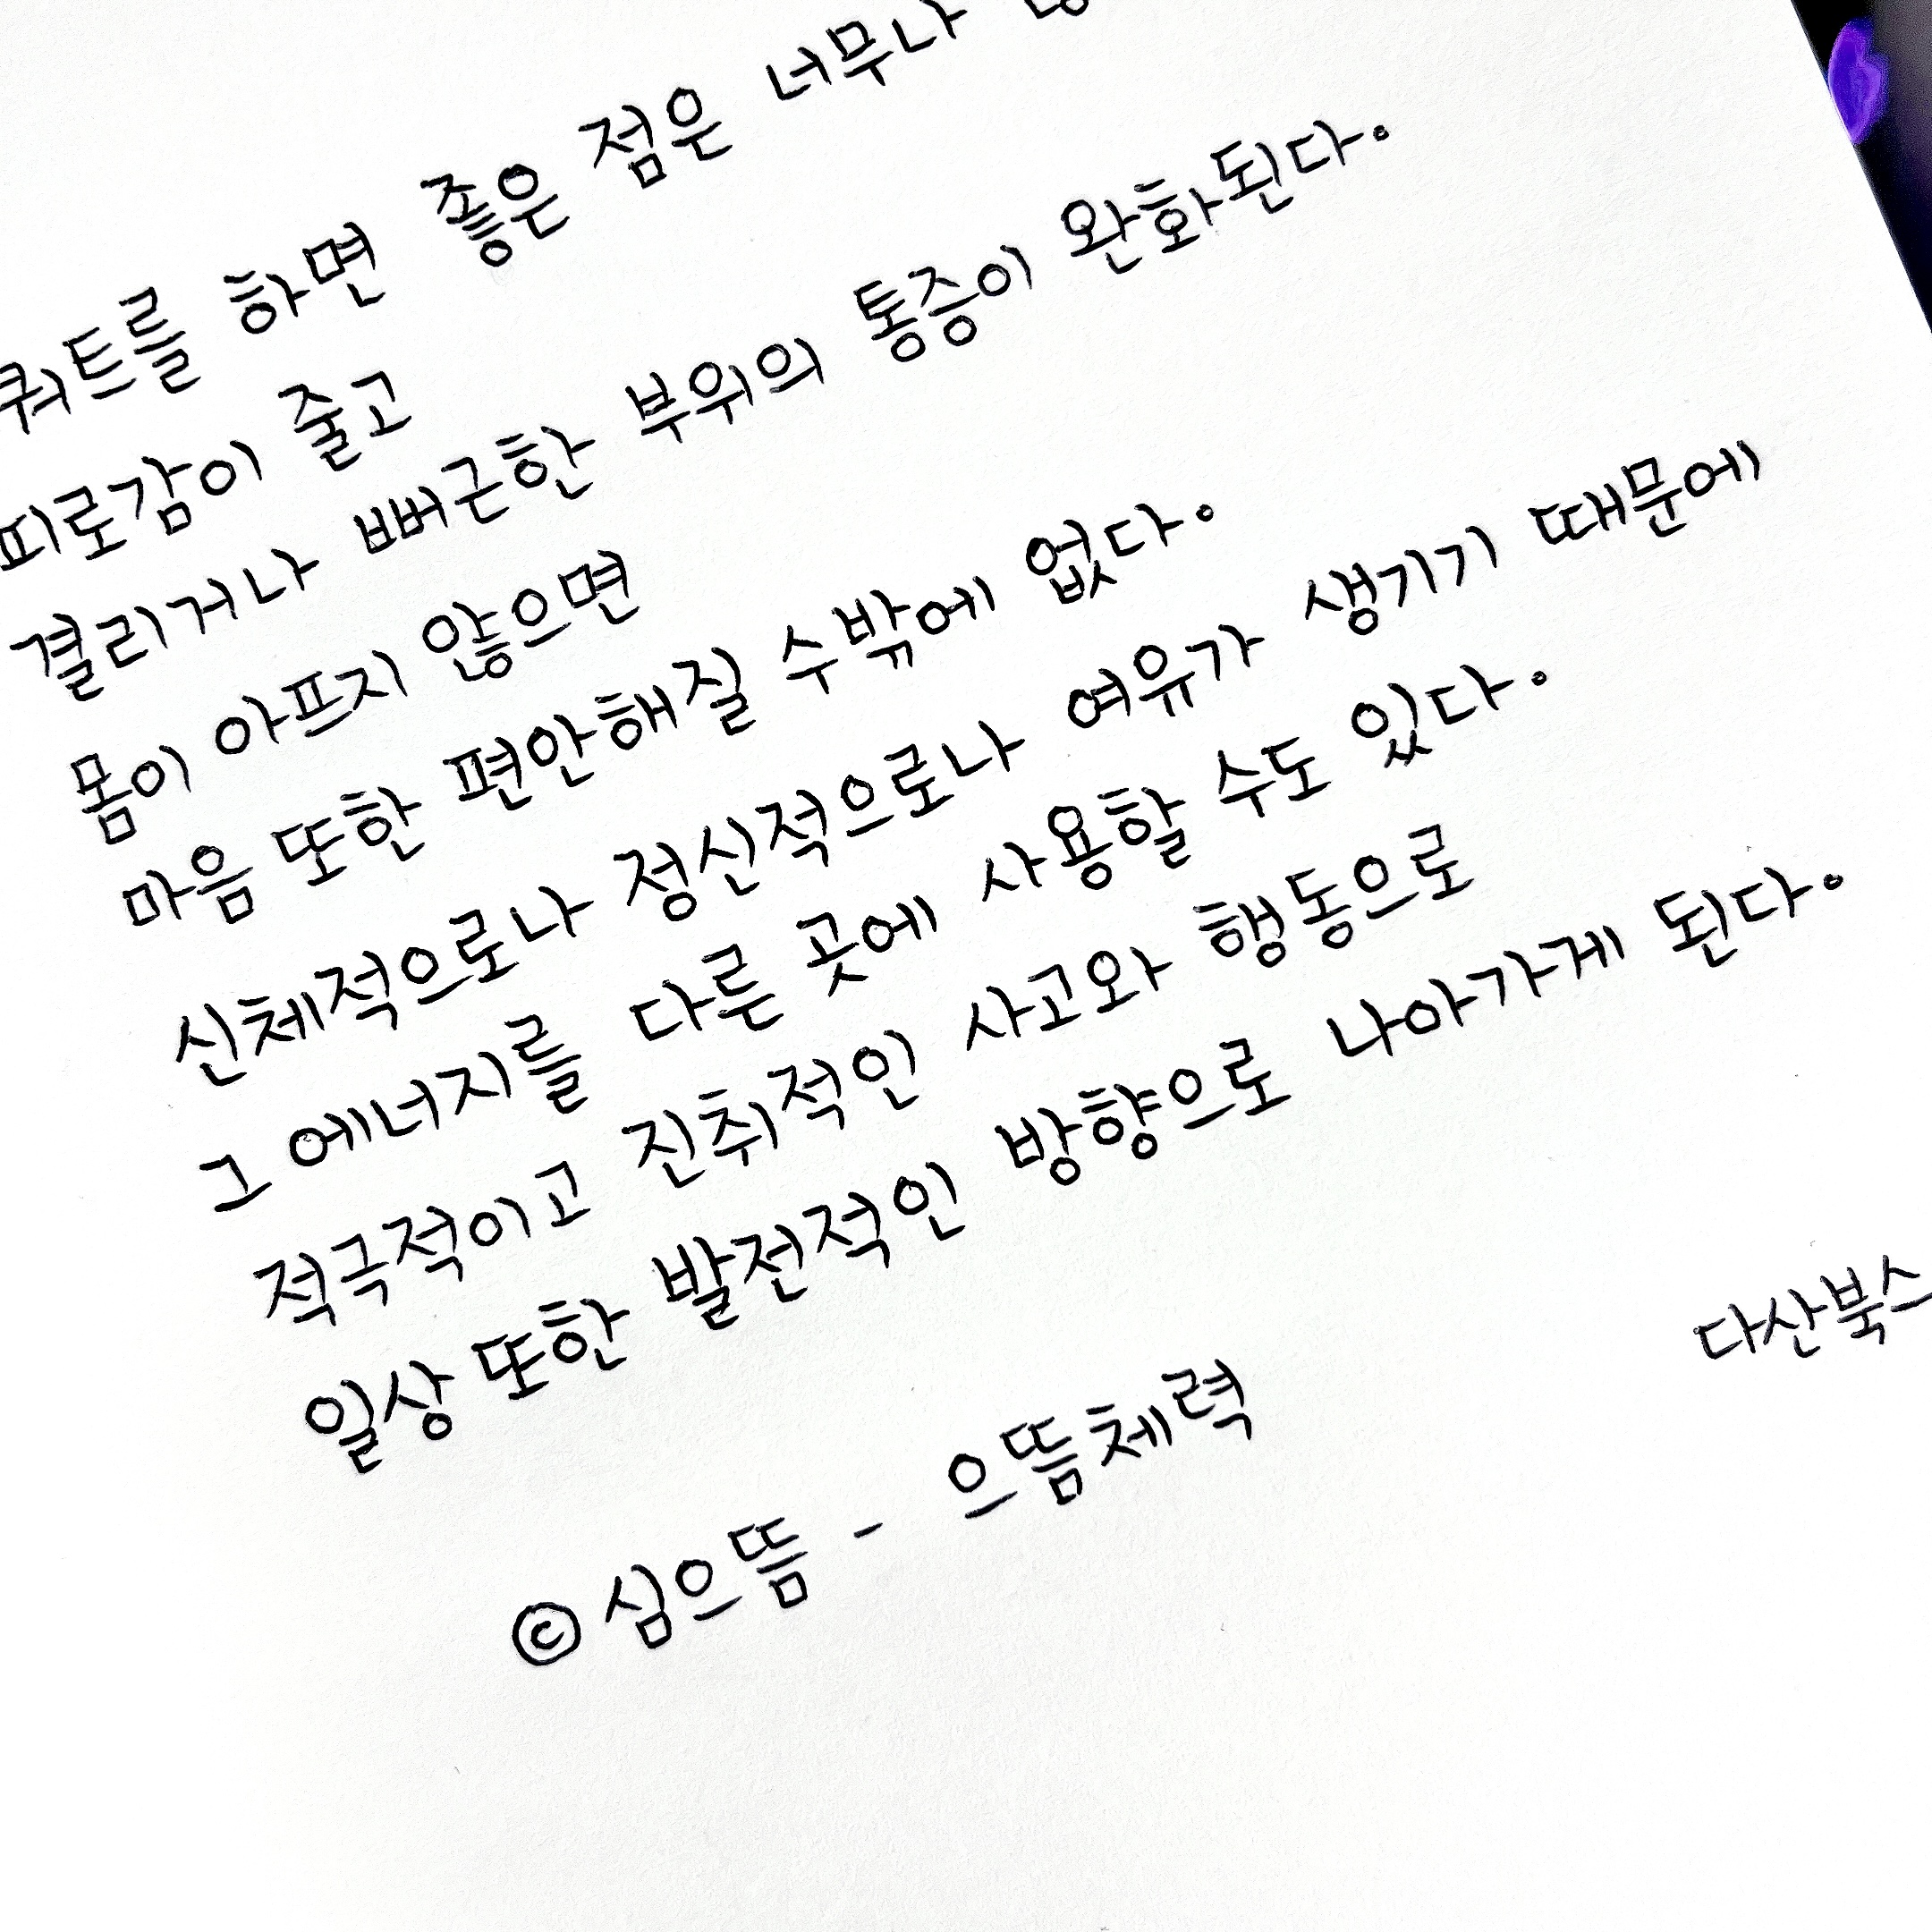 쿼트를 하면 좋은 점은 너무나
피로감이 줄고
결리거나 뻐근한 부위의 통증이 완화된다.
몸이 아프지 않으면
마음 또한 편안해질 수밖에 없다.
신체적으로나 정신적으로나 여유가 생기기 때문에
그 에너지를 다른 곳에 사용할 수도 있다.
적극적이고 진취적인 사고와 행동으로
일상 또한 발전적인 방향으로 나아가게 된다.
다산북스
© 심으뜸 - 으뜸체력